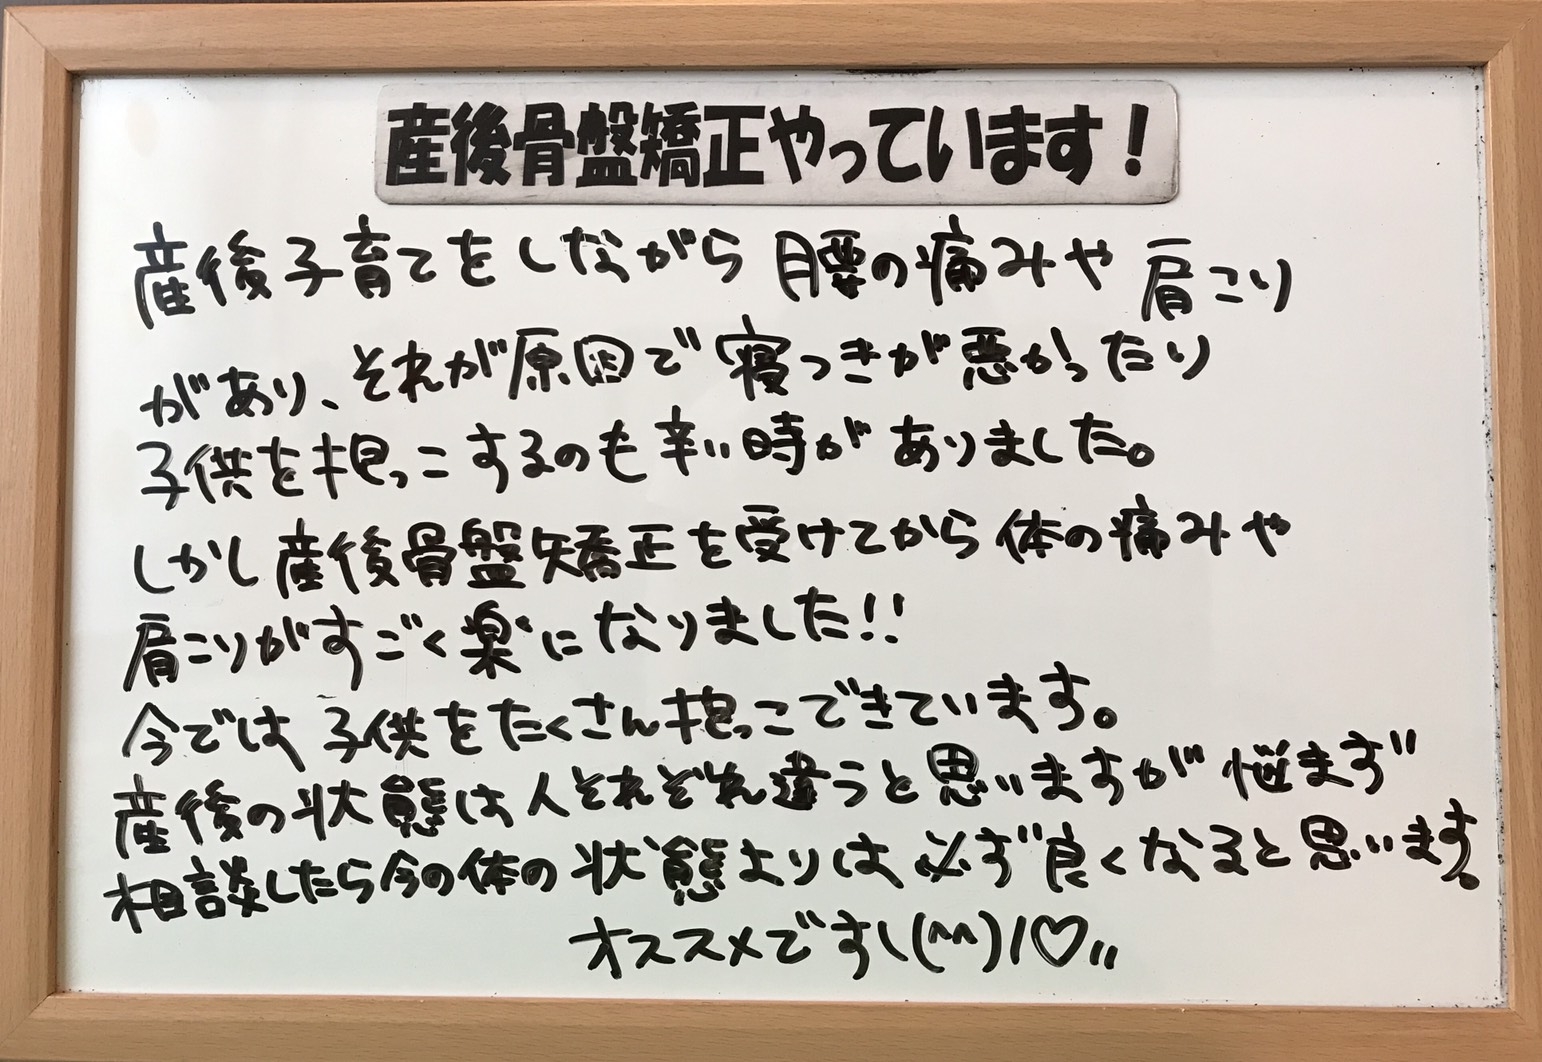 産後骨盤矯正やっています!
産後子育てをしながら腰の痛みや肩こり
があり、それが原因で寝つきが悪かったり
子供を抱っこするのも辛い時がありました。
しかし産後骨盤矯正を受けてから体の痛みや
肩こりがすごく楽になりました!!
今では子供をたくさん抱っこできています。
産後の状態は人それぞれ違うと思いますが悩まず
相談したら今の体の状態よりは必ず良くなると思います。
オススメです\(^^)/♡〃